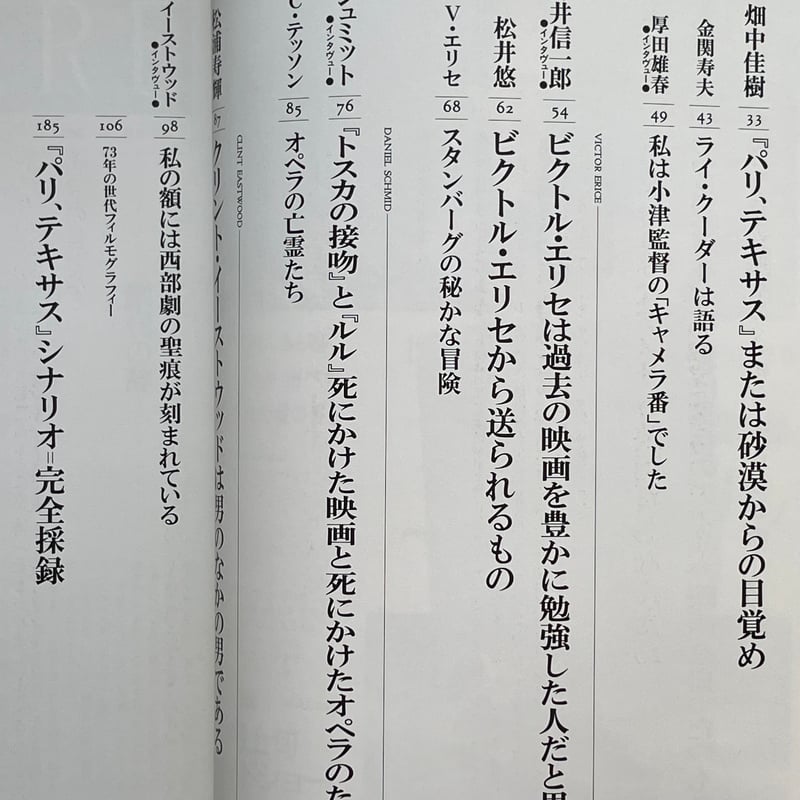 畑中佳樹 33 『パリ、テキサス』または砂漠からの目覚め
金関寿夫 43 ライ・クーダーは語る
厚田雄春 ●インタヴュー● 49 私は小津監督の「キャメラ番」でした
VICTOR ERICE
井信一郎 ●インタヴュー● 54 ビクトル・エリセは過去の映画を豊かに勉強した人だと思
松井悠 62 ビクトル・エリセから送られるもの
V・エリセ 68 スタンバーグの秘かな冒険
DANIEL SCHMID
シュミット ●インタヴュー● 76 『トスカの接吻』と『ルル』死にかけた映画と死にかけたオペラのた
C・テッソン 85 オペラの亡霊たち
CLINT EASTWOOD
松浦寿輝 87 クリント・イーストウッドは男のなかの男である
イーストウッド ●インタヴュー● 98 私の額には西部劇の聖痕が刻まれている
106 73年の世代フィルモグラフィー
185 『パリ、テキサス』シナリオ=完全採録